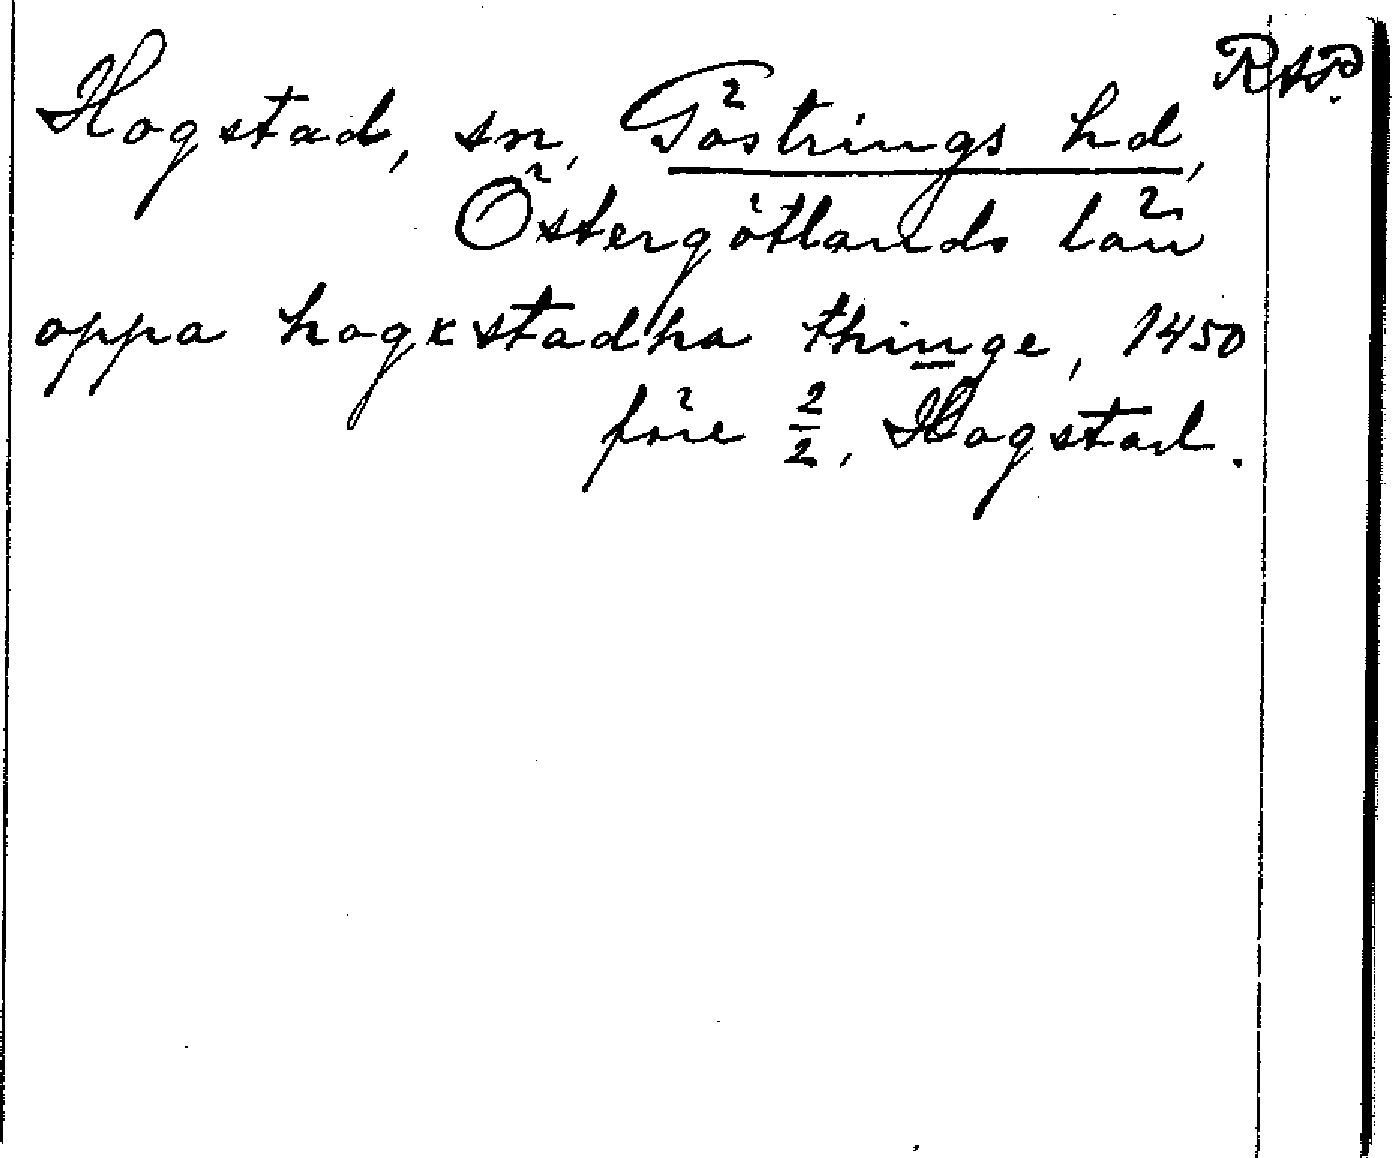 RAP.
Hogstad, sn, Göstrings hd,
Östergötlands län
oppa hogxstadha thinge, 1450
före 2/2, Hogstad.